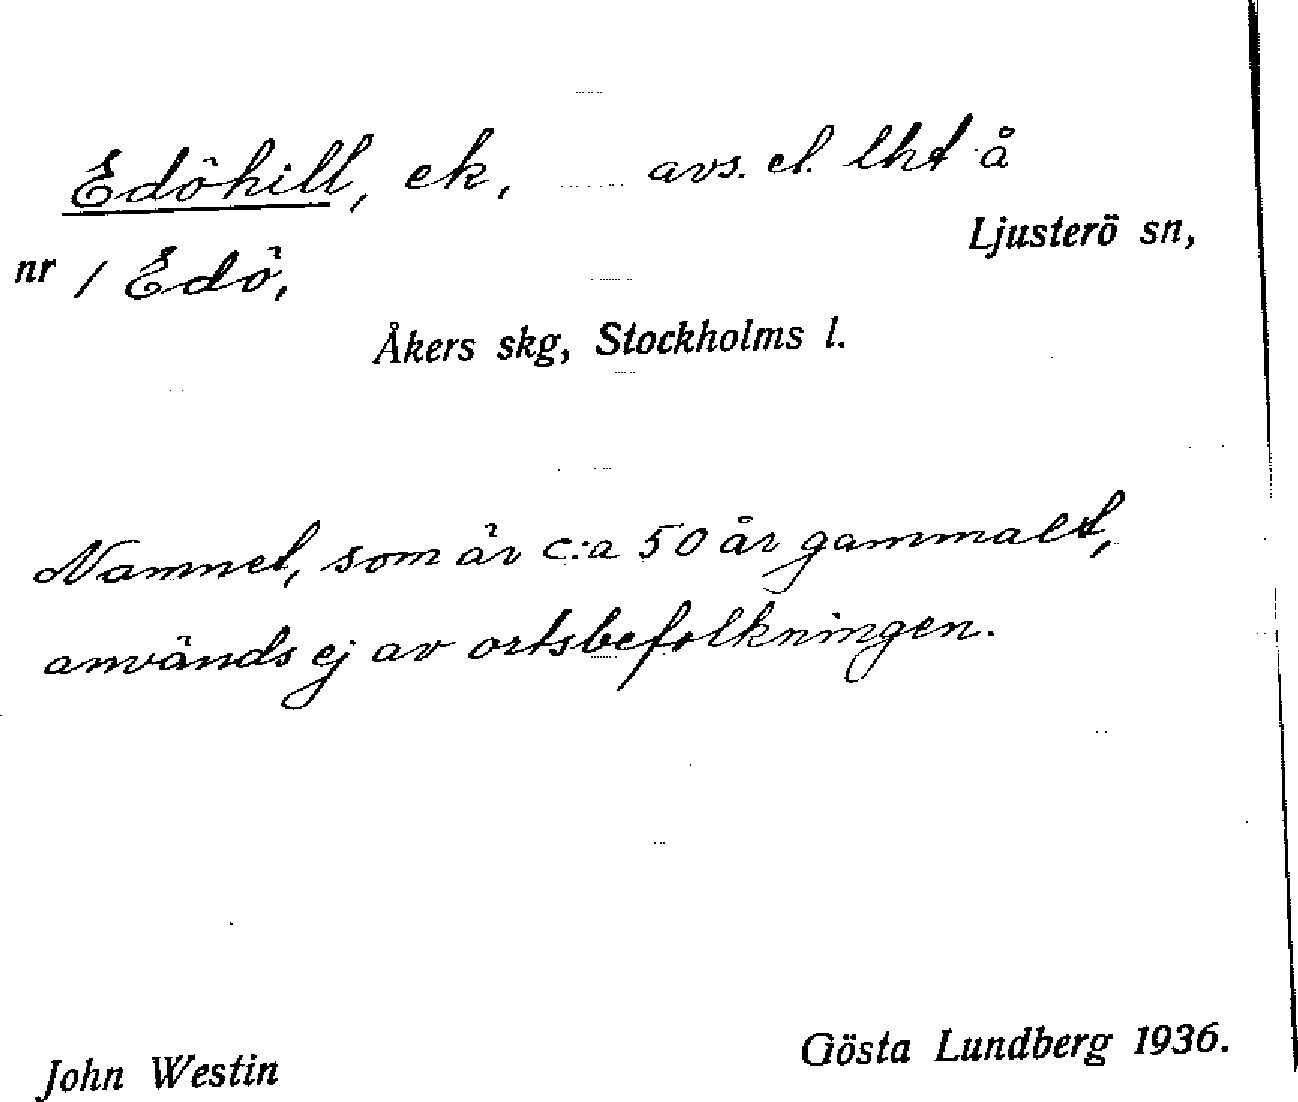 Edöhill, ek, avs. el. lht å
Ljusterö sn,
nr 1 Edö,
Åkers skg, Stockholms l.
Namnet, som är c:a 50 år gammalt,
används ej av ortsbefolkningen.
John Westin Gösta Lundberg 1936.